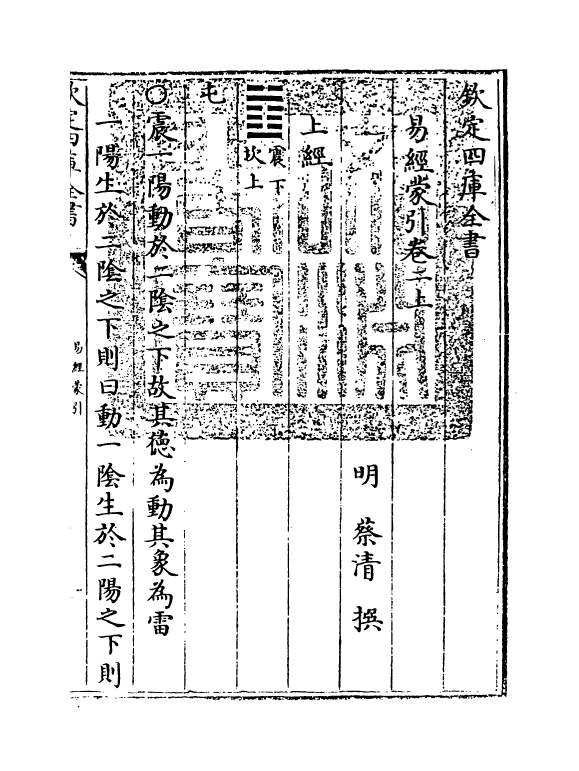 欽定四庫全書
易經蒙引卷二上
明 蔡清 撰
上經
震下
坎上
屯
○震一陽動於二陰之下故其德為動其象為雷
一陽生於二陰之下則曰動一陰生於二陽之下則
欽定四庫全書
易經蒙引